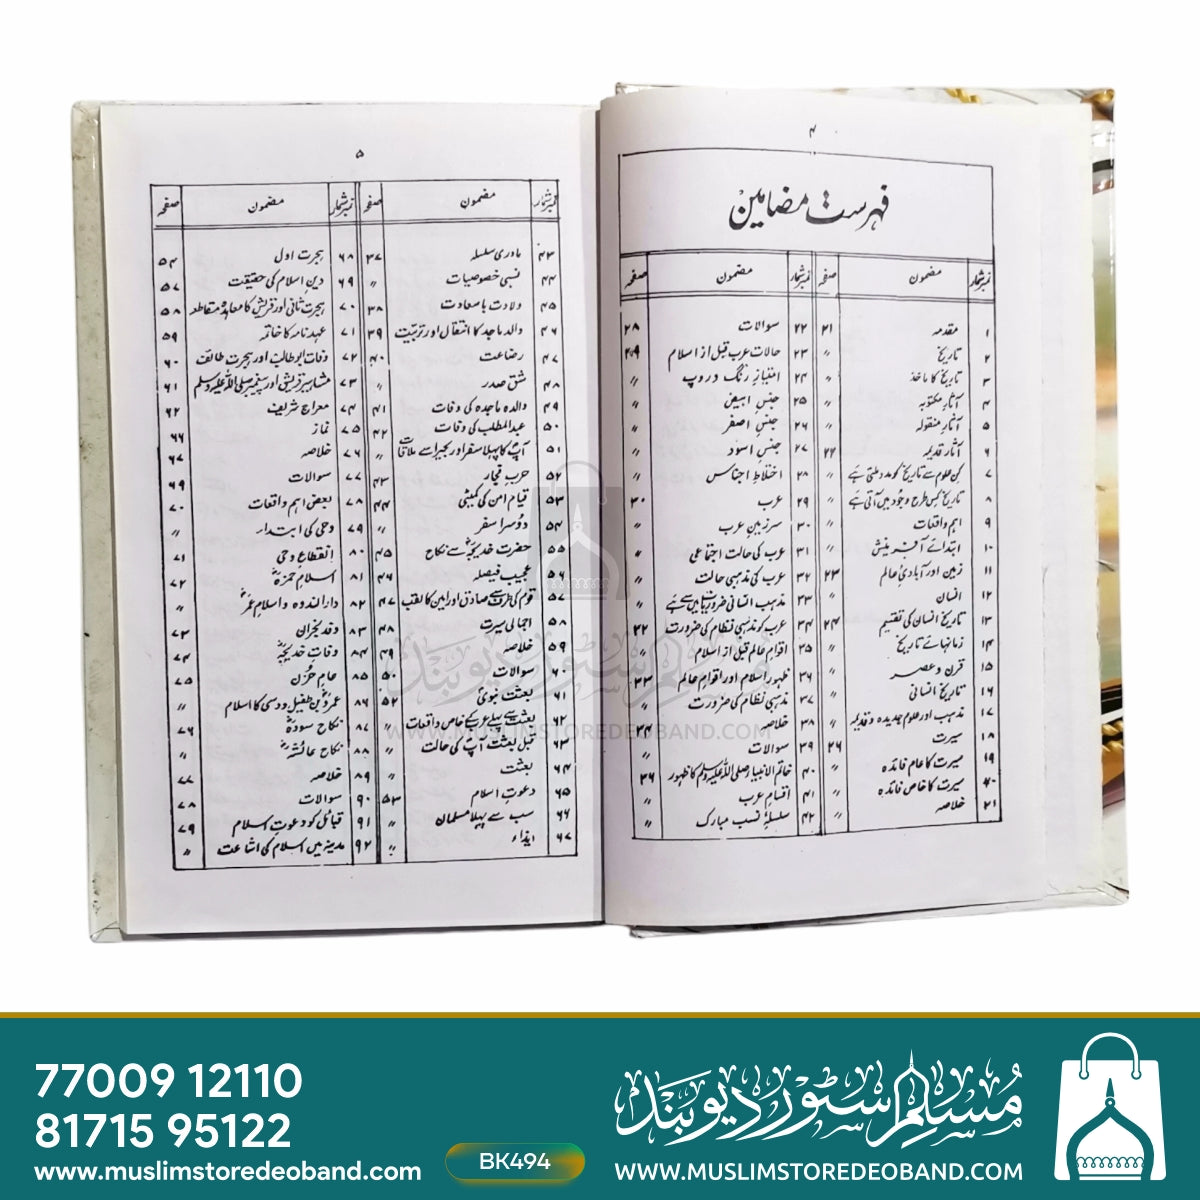 ۴
فہرست مضامین
نمبر شمار مضمون صفحہ نمبر شمار مضمون صفحہ
۱ مقدمہ ۲۱ ۲۲ سوالات ۲۸
۲ تاریخ 〃 ۲۳ حالات عرب قبل از اسلام ۲۹
۳ تاریخ کا ماخذ 〃 ۲۴ امتیاز رنگ و روپ 〃
۴ آثار مکتوبہ 〃 ۲۵ جنس ابیض 〃
۵ آثار منقولہ 〃 ۲۶ جنس اصفر 〃
۶ آثار قدیمہ ۲۲ ۲۷ جنس اسود 〃
۷ کن علوم سے تاریخ کو مدد ملتی ہے 〃 ۲۸ اختلاط اجناس 〃
۸ تاریخ کس طرح وجود میں آتی ہے 〃 ۲۹ عرب ۳۰
۹ اہم واقعات 〃 ۳۰ سرزمین عرب 〃
۱۰ ابتدائے آفرینش 〃 ۳۱ عرب کی حالت اجتماعی 〃
۱۱ زمین اور آبادی عالم ۲۳ ۳۲ عرب کی مذہبی حالت 〃
۱۲ انسان 〃 ۳۳ مذہب انسانی ضروریات میں سے ہے 〃
۱۳ تاریخ انسان کی تقسیم ۲۴ ۳۴ عرب کو مذہبی نظام کی ضرورت ۳۲
۱۴ زمانہائے تاریخ 〃 ۳۵ اقوام عالم قبل از اسلام 〃
۱۵ قرن و عصر 〃 ۳۶ ظہور اسلام اور اقوام عالم ۳۳
۱۶ تاریخ انسانی 〃 ۳۷ مذہبی نظام کی ضرورت 〃
۱۷ مذہب اور علوم جدیدہ و قدیمہ 〃 ۳۸ خلاصہ ۳۴
۱۸ سیرت ۲۶ ۳۹ سوالات 〃
۱۹ سیرت کا عام فائدہ 〃 ۴۰ خاتم الانبیاء صلی اللہ علیہ وسلم کا ظہور ۳۶
۲۰ سیرت کا خاص فائدہ 〃 ۴۱ اقسام عرب 〃
۲۱ خلاصہ 〃 ۴۲ سلسلۂ نسب مبارک 〃
۵
نمبر شمار مضمون صفحہ نمبر شمار مضمون صفحہ
۴۳ مادری سلسلہ ۳۷ ۶۸ ہجرت اول ۵۴
۴۴ نسبی خصوصیات 〃 ۶۹ دین اسلام کی حقیقت ۵۷
۴۵ ولادت باسعادت ۳۸ ۷۰ ہجرت ثانی اور قریش کا معاہدۂ مقاطعہ ۵۸
۴۶ والد ماجد کا انتقال اور تربیت ۳۹ ۷۱ عہد نامہ کا خاتمہ ۵۹
۴۷ رضاعت ۴۰ ۷۲ وفات ابوطالب اور ہجرت طائف ۶۰
۴۸ شق صدر 〃 ۷۳ مشاہیر قریش اور پیغمبر صلی اللہ علیہ وسلم ۶۱
۴۹ والدہ ماجدہ کی وفات ۴۱ ۷۴ معراج شریف ۶۲
۵۰ عبد المطلب کی وفات ۴۲ ۷۵ نماز ۶۶
۵۱ آپؐ کا پہلا سفر اور بحیرا سے ملاقات 〃 ۷۶ خلاصہ ۶۷
۵۲ حرب فجار ۴۳ ۷۷ سوالات ۶۹
۵۳ قیام امن کی کمیٹی ۴۴ ۷۸ بعض اہم واقعات ۷۰
۵۴ دوسرا سفر 〃 ۷۹ وحی کی ابتداء 〃
۵۵ حضرت خدیجہؓ سے نکاح ۴۵ ۸۰ انقطاع وحی ۷۱
۵۶ عجیب فیصلہ ۴۶ ۸۱ اسلام حمزہؓ ۷۲
۵۷ قوم کی طرف سے صادق اور امین کا لقب ۴۷ ۸۲ دار الندوہ و اسلام عمرؓ 〃
۵۸ اجمالی سیرت ۴۸ ۸۳ وفد نجران ۷۳
۵۹ خلاصہ ۴۹ ۸۴ وفات خدیجہؓ ۷۴
۶۰ سوالات ۵۰ ۸۵ عام حزن ۷۵
۶۱ بعثت نبویؐ ۵۲ ۸۶ عمروؓ بن طفیل دوسی کا اسلام
۶۲ بعثت سے پہلے عرب کے خاص واقعات 〃 ۸۷ نکاح سودہؓ ۷۶
۶۳ قبل بعثت آپؐ کی حالت 〃 ۸۸ نکاح عائشہؓ 〃
۶۴ بعثت 〃 ۸۹ خلاصہ ۷۷
۶۵ دعوت اسلام ۵۳ ۹۰ سوالات ۷۸
۶۶ سب سے پہلا مسلمان 〃 ۹۱ قبائل کو دعوت اسلام ۷۹
۶۷ ایذاء 〃 ۹۲ مدینہ میں اسلام کی اشاعت 〃
مسلم سٹور دیوبند
WWW.MUSLIMSTOREDEOBAND.COM
77009 12110
81715 95122
www.muslimstoredeoband.com
BK494
مسلم سٹور دیوبند
WWW.MUSLIMSTOREDEOBAND.COM